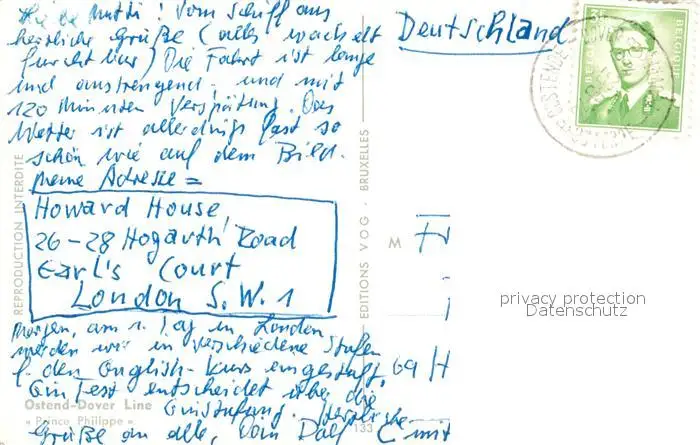 Mutti! Vom Schiff aus
herzliche Grüße (alles wackelt
furchtbar) Die Fahrt ist lange
und anstrengend, und mit
120 Minuten Verspätung. Das
Wetter ist allerdings fast so
schön wie auf dem Bild.
Meine Adresse =
Howard House,
26-28 Hogarth Road
Earl's Court
London S.W.1
Morgen, am 1. Tag in London
werden wir in verschiedene Stufen
f. den English-Kurs eingestuft.
Ein Test entscheidet über die
Einstufung. Herzliche
Grüße an alle,
Ostend-Dover Line
« Prince Philippe »
REPRODUCTION INTERDITE
EDITIONS VOG - BRUXELLES
133
Deutschland
BELGIQUE
OSTENDE
DOVER
M
69 H
privacy protection
Datenschutz